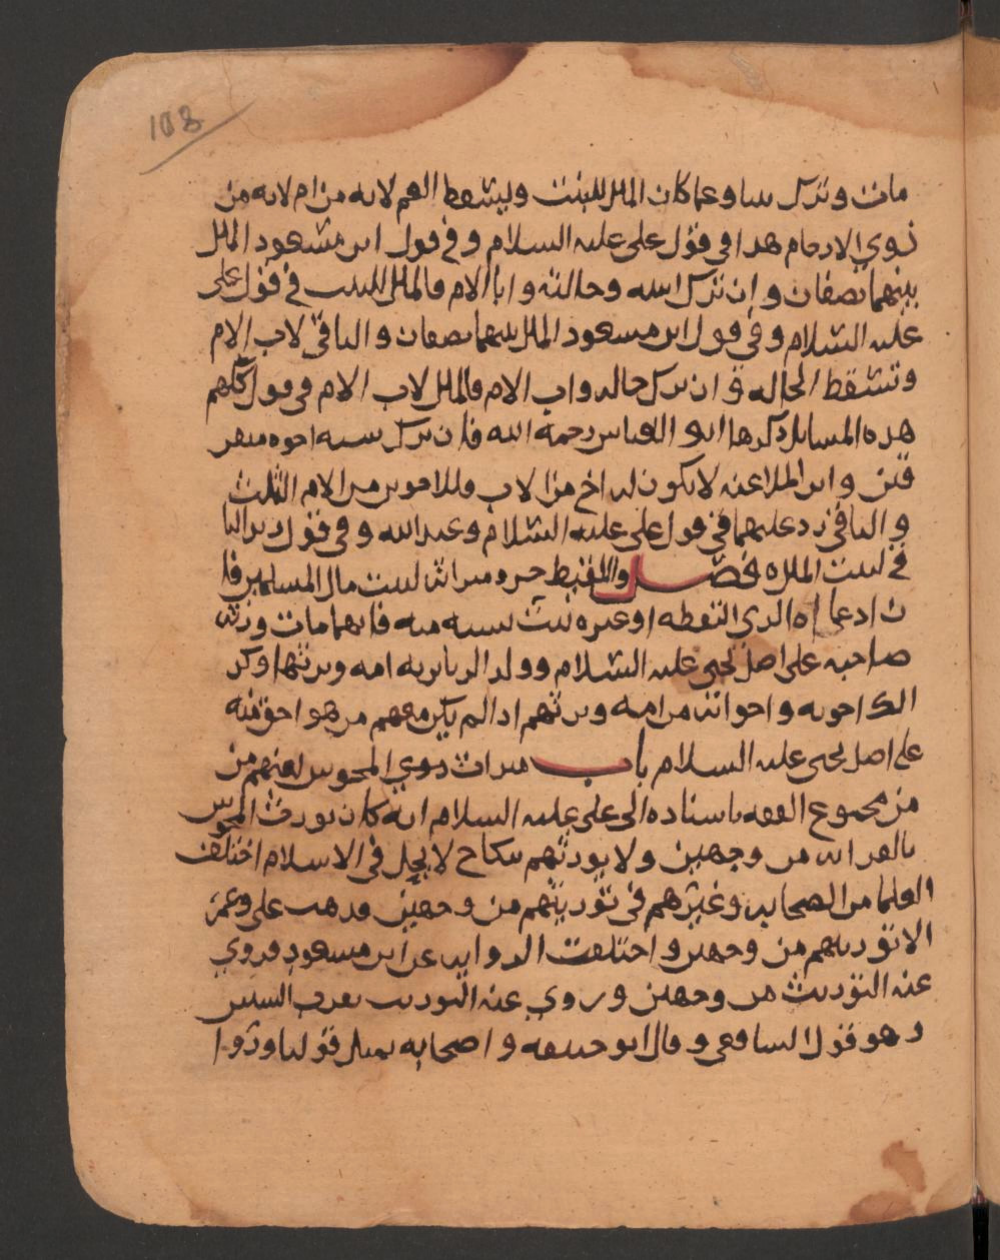 108
مات وترك بنتا وعما كان المال للبنت ويسقط العم لانه من ام لانه من
ذوي الارحام هذا في قول علي عليه السلام وفي قول ابن مسعود المال
بينهما نصفان وان ترك ابنته وخالته وابا الام فالمال للبنت في قول علي
عليه السلام وفي قول ابن مسعود المال بينهما نصفان والباقي لاب الام
وتسقط الخالة فان ترك خاله واب الام فالمال لاب الام في قول كلهم
هذه المسايل ذكرها ابو العباس رحمه الله فان ترك ستة اخوه متفر
قين وابن الملاعنه لا يكون له اخ من الاب وللاخوين من الام الثلث
والباقي رد عليهما في قول علي عليه السلام وعبد الله وفي قول زيد البا
في لبيت المال ه فصل واللقيط حر وميراثه لبيت مال المسلمين فا
ن ادعا اه الذي التقطه او غيره ثبت نسبه منه فايهما مات ورثه
صاحبه على اصل يحيى عليه السلام وولد الزنا يرثه امه ويرثها وكذ
الك اخوته واخواته من امه ويرثهم اذا لم يكن معهم من هو احق منه
على اصل يحيى عليه السلام باب ميراث ذوي المجوس لعنهم من
من مجموع الفقه باسناده الى علي عليه السلام انه كان يورث المجوس
بالقرابه من وجهين ولا يورثهم بنكاح لا يحل في الاسلام اختلف
العلما من الصحابه وغيرهم في توريثهم من وجهين فذهب علي وعمر
الا توريثهم من وجهين واختلفت الروايه عن ابن مسعود فروي
عنه التوريث من وجهين وروي عنه التوريث بقرب السببين
وهو قول الشافعي وقال ابو حنيفه واصحابه بمثل قولنا وروا